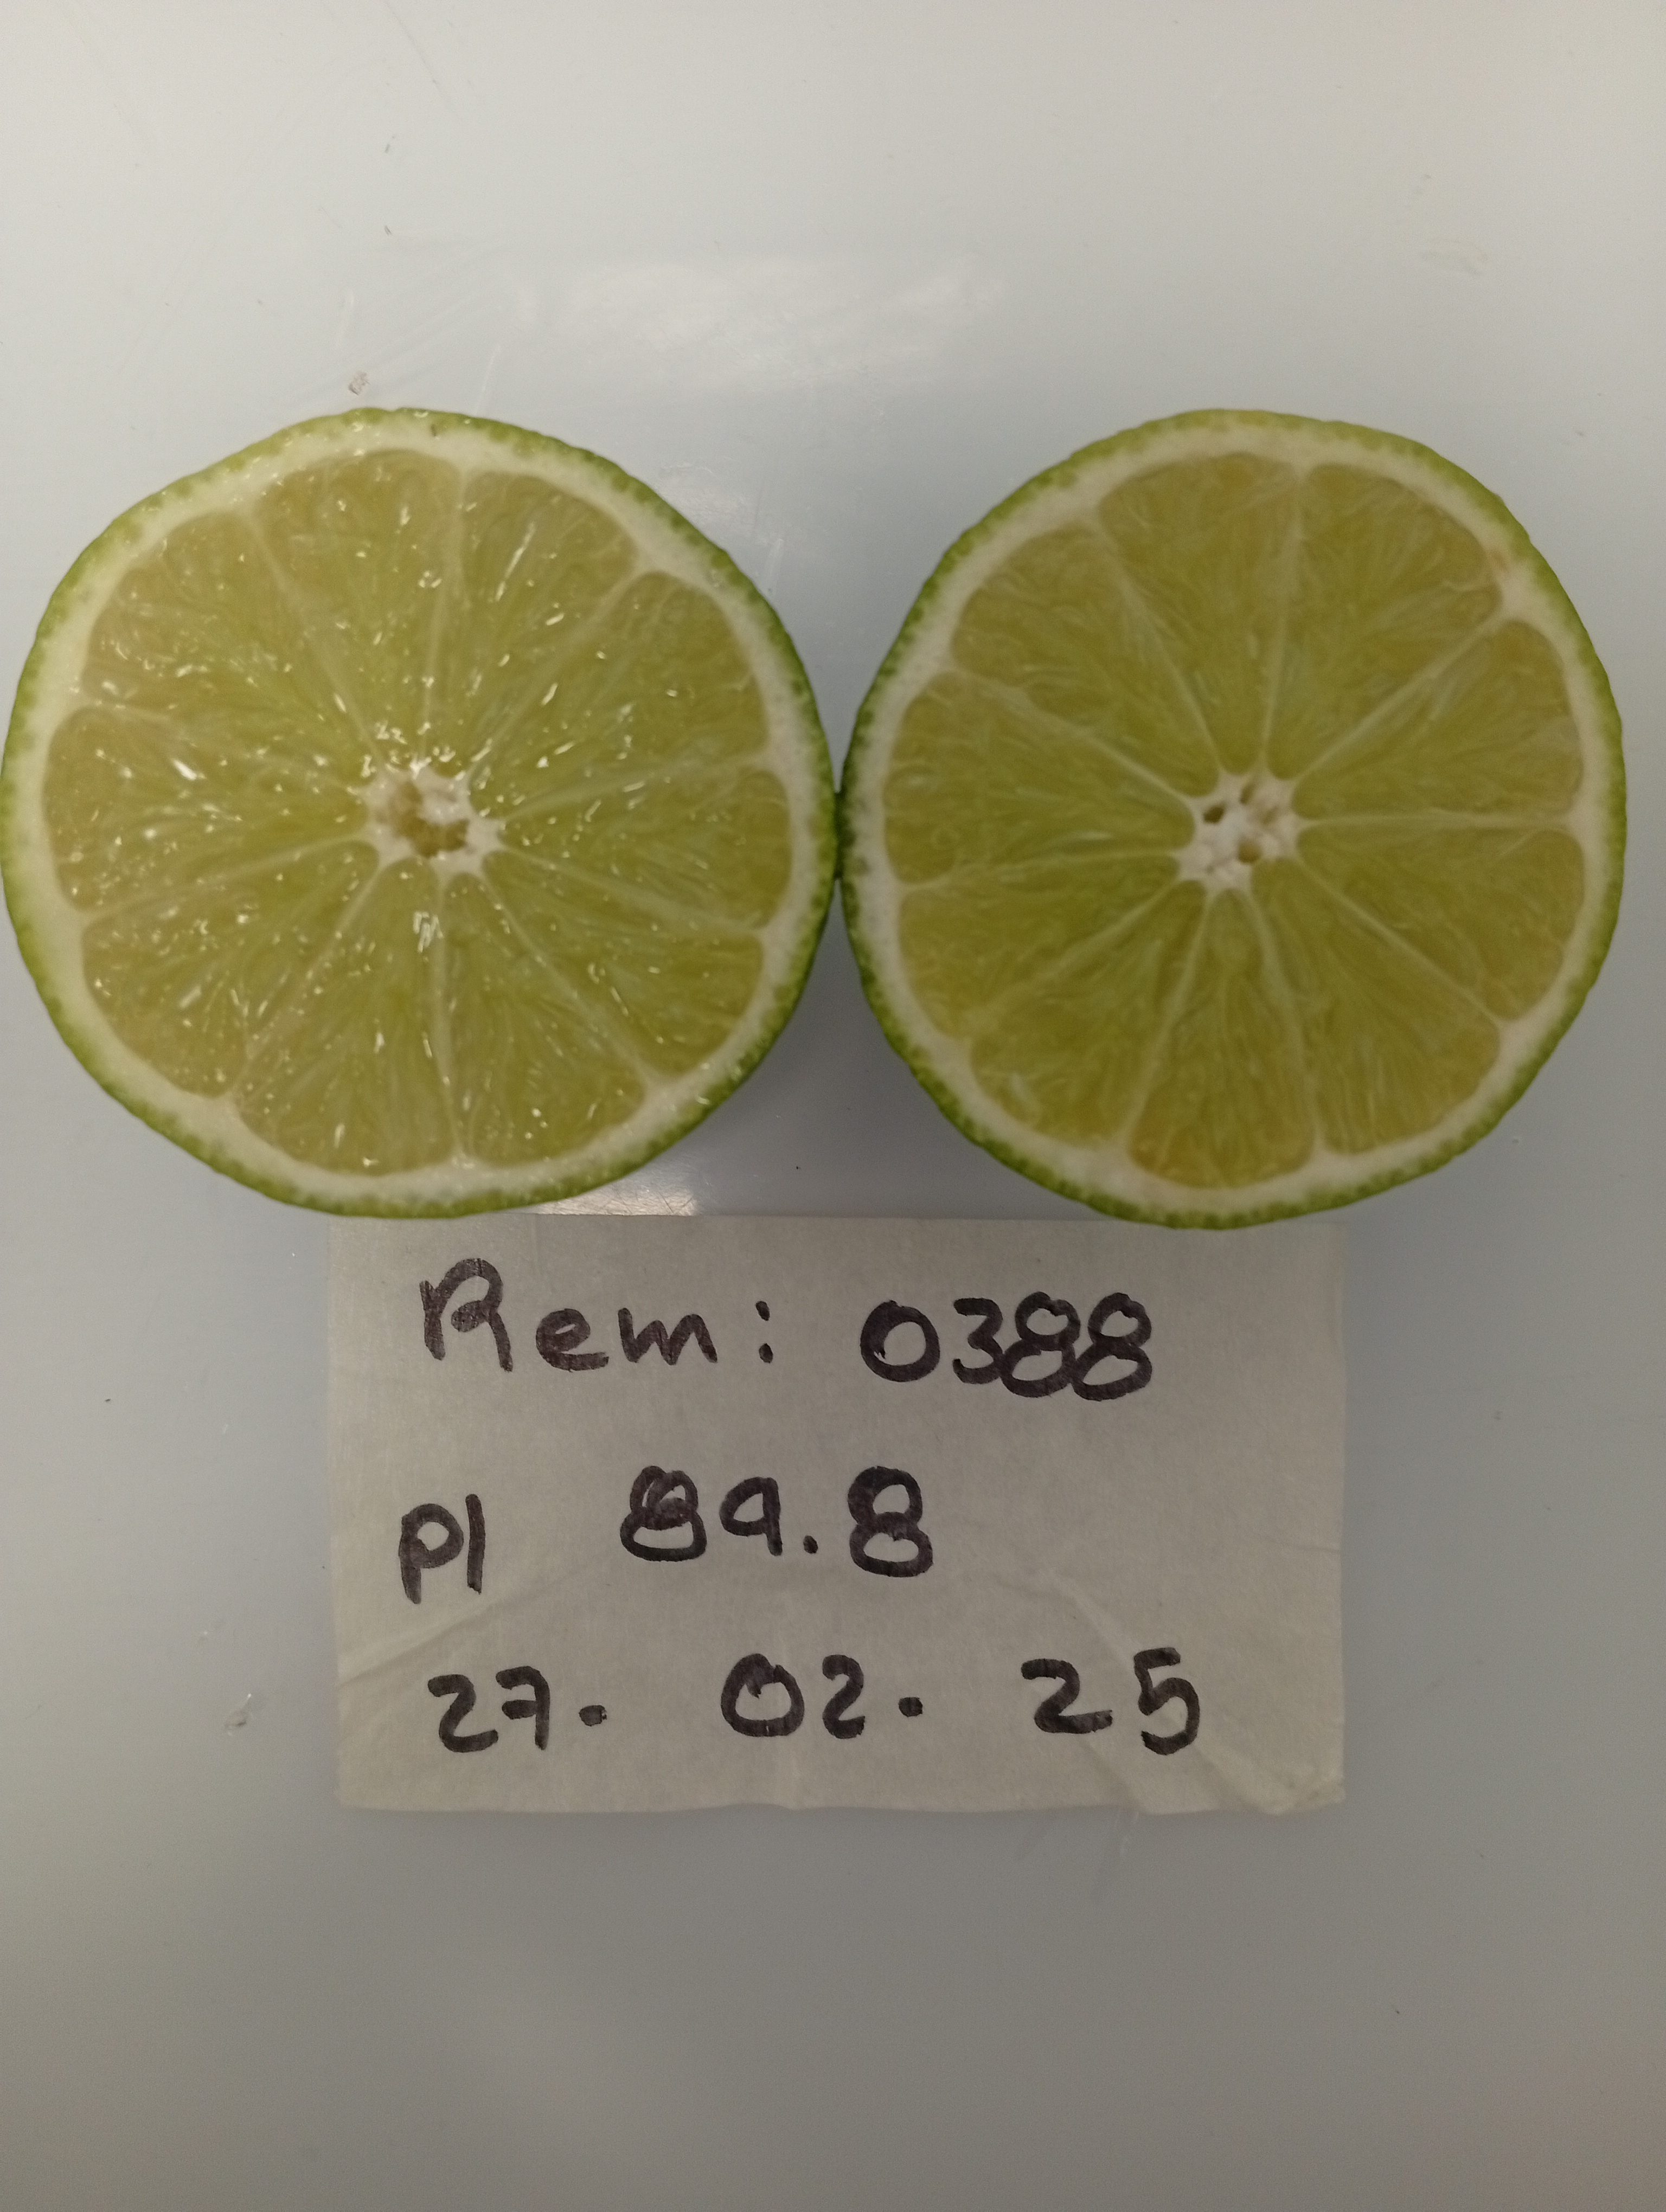 Rem: 0388
pl 89.8
27. 02. 25